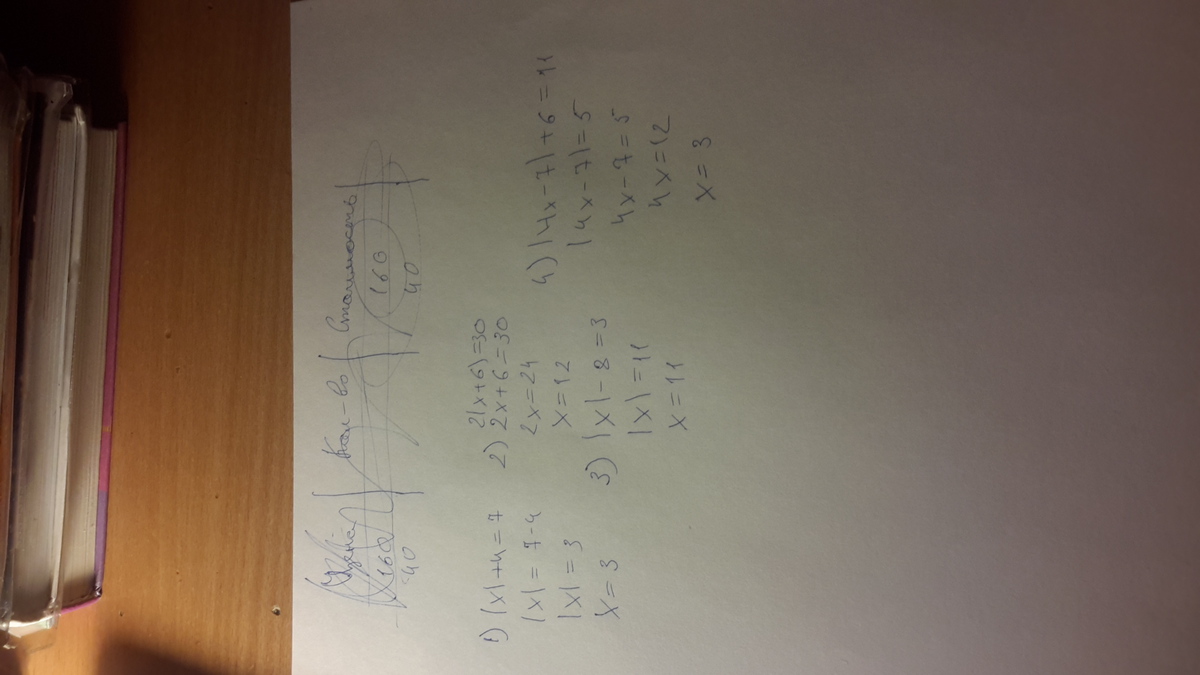 Цена Кол-во Стоимость
160 160
40 40
1) |x|+4=7
|x|=7-4
|x|=3
x=3
2(x+6)=30
2) 2x+6=30
2x=24
x=12
3) |x|-8=3
|x|=11
x=11
4) |4x-7|+6=11
|4x-7|=5
4x-7=5
4x=12
x=3